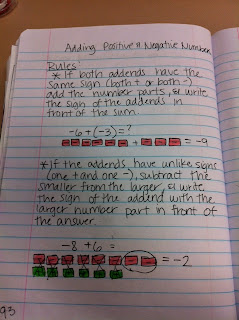 Adding Positive & Negative Numbers
Rules:
* If both addends have the
same sign (both + or both -)
add the number parts, & write
the sign of the addends in
front of the sum.
-6 + (-3) = ?
+ = -9
* If the addends have unlike signs
(one + and one -), subtract the
smaller from the larger, & write
the sign of the addend with the
larger number part in front of
the answer.
-8 + 6 =
= -2
93